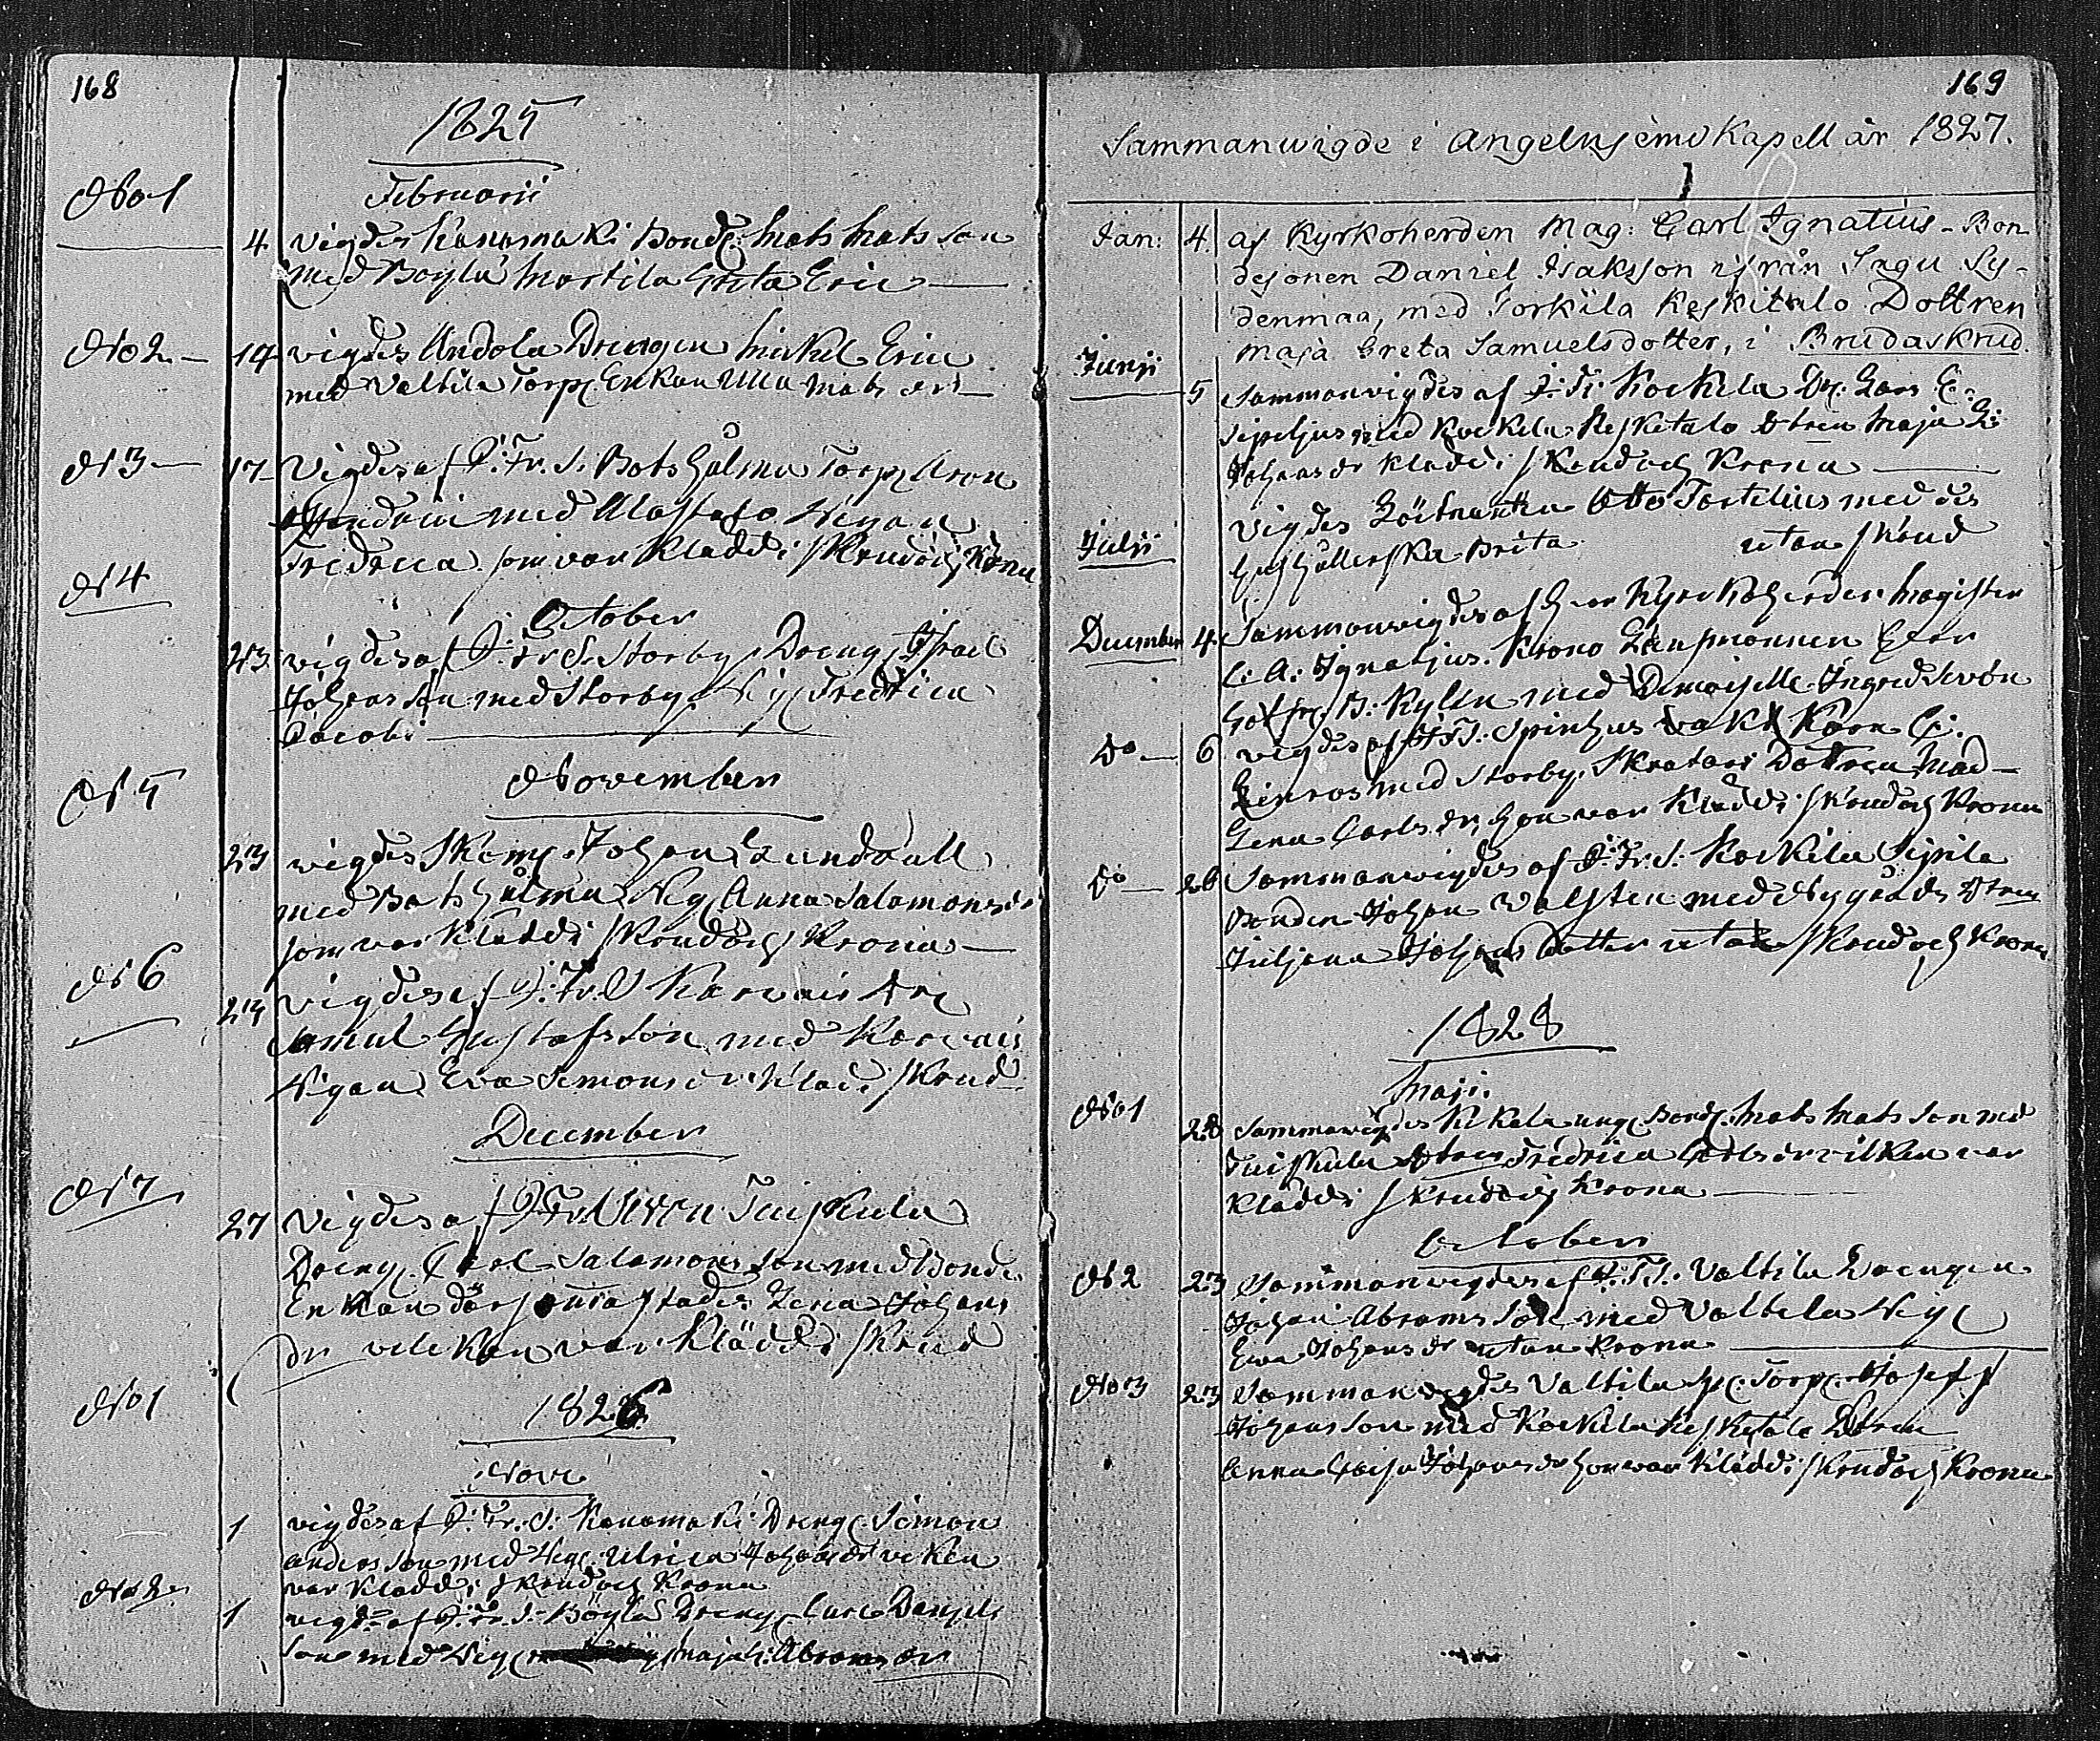 168
1825
Februarii
No 1
4 vigdes Kanamaki Bond: Mats Mats son
med Böylä Martila Greta Eric
No 2 — 14 vigdes Andola Drengen Mickel Eric
med Valtila Torp: Enkan Ulla Mats dr
N 3 — 17 Vigdes af P: Fr. S: Botshålma Torp Aron
med Alastalo Pigan
Fredrica som var klädd i skrud och Krona
N 4
October
23 vigdes af P: Fr S: Storby Dreng Israel
Johansson med Storby Pig Fredrica
Jacobs
N 5
November
23 vigdes Skepp. Johan Lundvall
med Botshålma Pig Anna Salamons dr
som var klädd i skrud och Krona
N 6
23 vigdes af P: Fr. S Korvais Dre
Samul Gustafsson med Korvais
Pigan Eva Simons dr klädd i skrud
December
N 7
27 Vigdes af P Fr. Tuiskula
Dreng Carl Salamons son med Bonde
Enkan därsammastädes Lena Johans
dr vilcken var klädd i skrud
No 1
1826
Nov:
1 vigdes af P: Fr. S: Kanamaki Dreng Simon
Anders son med Pig: Ulrica Johans dr vicken
var klädd i skrud och Krona
No 2
1 vigd: af P: Fr. S: Böylä Dreng Carl Danjels
son med Pig Maja L: Abrams dr
169
Sammanwigde i Angelnjemi Kapell år 1827.
Jan: 4. af Kyrkoherden Mag: Carl Ignatius - Bon-
desonen Daniel Isaksson ifrån Sagu Sy-
denmaa, med Torkila Keskitalo Dottren
Maja Greta Samuelsdotter, i Brudaskrud.
Junii
5 Sammanvigdes af P: Fr: S: Kockila Dr: Lars E:
Sipeljus med Kockila Keskitalo Dtren Maja L:
Johans dr klädd i skrud och Krona
Julii
Vigdes Löitnanten Otto Tortelius med des
Hushållerska Brita utan skrud
December 4 Sammanvigdes af Herr Kyrckoherden Magister
C: A: Ignatjus. Krono Länsmannen Herr
Gotfr. B: Kylen med Demoiselle Ingred
Do — 6 vigdes af P: Fr S: Spinhus vakt Karn C:
med Storby Skrätars Dottren Mad-
Lena Carls dr, hon var klädd i skrud och Krona
Do — 26 Sammanvigdes af P: Fr. S: Kockila Sipila
Bonden Johan Walsten med Nygårds Dtren
Juljana Johans Dotter utan skrud och Krona
1828
Maji.
No 1
28 Sammanvigdes Kikala ung Bond: Mats Mats son med
Tuiskula Dtren Fredrica Carls dr vilken var
klädd i skrud och Krona
October
N 2 23 Sammanvigdes af P: Fr S: Valtila Drengen
Johan Abrams son med Valtila Pig
Eva Johans dr utan Krona
No 3 23 Sammanvigdes Valtila Sp: Torp: Josef
Johans son med Kockila Keskitalo Dtren
Anna Caisa Johans dr hon var klädd i skrud och Krona